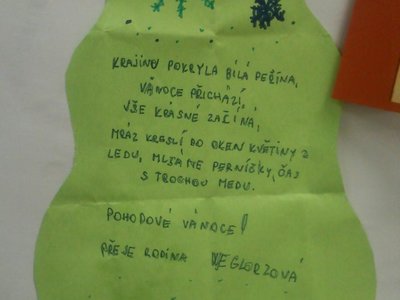 KRAJINU POKRYLA BÍLÁ PEŘINA,
VÁNOCE PŘICHÁZÍ,
VŠE KRÁSNÉ ZAČÍNÁ,
MRÁZ KRESLÍ DO OKEN KVĚTINY Z
LEDU, MLSÁME PERNÍČKY, ČAJ
S TROCHOU MEDU.
POHODOVÉ VÁNOCE!
PŘEJE RODINA WEGLORZOVÁ